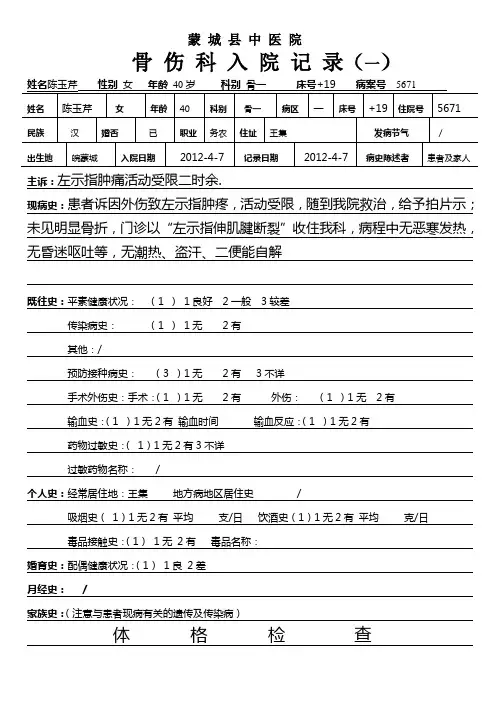 蒙城县中医院
骨伤科入院记录(一)
姓名陈玉芹 性别 女 年龄 40岁 科别 骨一 床号+19 病案号 5671
姓名 陈玉芹 女 年龄 40 科别 骨一 病区 一 床号 +19 住院号 5671
民族 汉 婚否 已 职业 务农 住址 王集 发病节气 /
出生地 皖蒙城 入院日期 2012-4-7 记录日期 2012-4-7 病史陈述者 患者及家人
主诉:左示指肿痛活动受限二时余.
现病史:患者诉因外伤致左示指肿疼,活动受限,随到我院救治,给予拍片示;
未见明显骨折,门诊以“左示指伸肌腱断裂”收住我科,病程中无恶寒发热,
无昏迷呕吐等,无潮热、盗汗、二便能自解
既往史:平素健康状况: (1 ) 1良好 2一般 3较差
传染病史: (1 ) 1无 2有
其他:/
预防接种病史: (3 )1无 2有 3不详
手术外伤史:手术:(1 )1无 2有 外伤: (1 )1无 2有
输血史:(1 )1无2有 输血时间 输血反应:(1 )1无2有
药物过敏史:( 1)1无2有3不详
过敏药物名称: /
个人史:经常居住地:王集 地方病地区居住史 /
吸烟史( 1)1无2有 平均 支/日 饮酒史(1)1无2有 平均 克/日
毒品接触史:(1) 1无 2有 毒品名称:
婚育史:配偶健康状况:(1) 1良 2差
月经史: /
家族史:(注意与患者现病有关的遗传及传染病)
体格检查